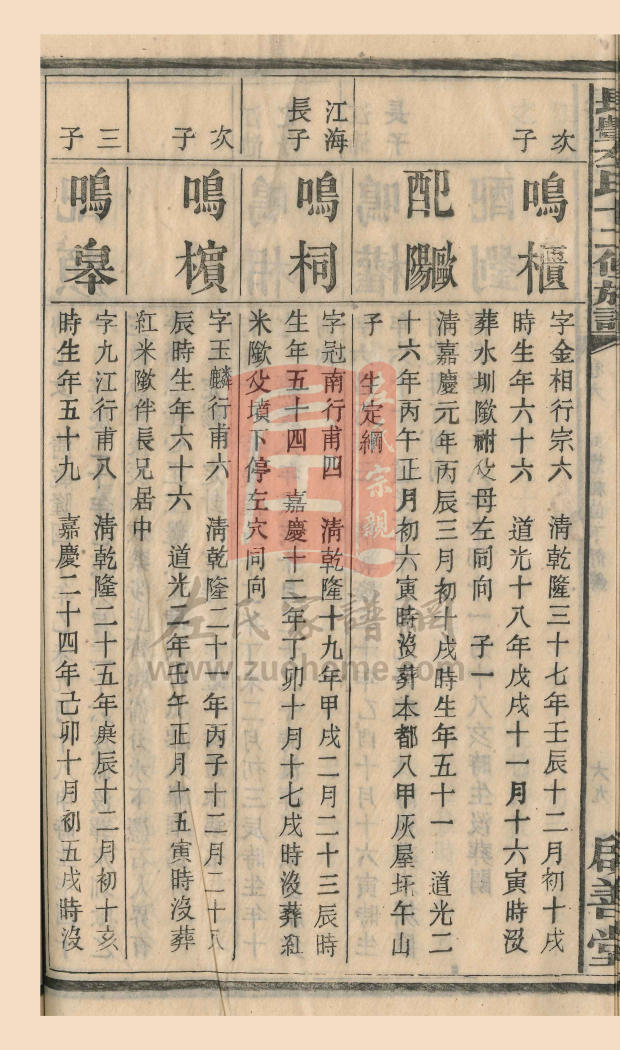 左氏十二修族譜
啟善堂
次子
鳴櫃
字金相行宗六　清乾隆三十七年壬辰十二月初十戌
時生年六十六　道光十八年戊戌十一月十六寅時沒
葬水圳𡑞祔父母左同向　子一
配歐陽
清嘉慶元年丙辰三月初十戌時生年五十一　道光二
十六年丙午正月初六寅時沒葬本都八甲灰屋坵午山
子　生定綱
江海長子
鳴桐
字冠南行甫四　清乾隆十九年甲戌二月二十三辰時
生年五十四　嘉慶十二年丁卯十月十七戌時沒葬紅
米𡑞父墳下停左穴同向
次子
鳴檳
字玉麟行甫六　清乾隆二十一年丙子十二月二十八
辰時生年六十六　道光二年壬午正月十五寅時沒葬
紅米𡑞伴長兄居中
三子
鳴皋
字九江行甫八　清乾隆二十五年庚辰十二月初十亥
時生年五十九　嘉慶二十四年己卯十月初五戌時沒
左氏宗親
左氏家譜網
www.zuohome.com